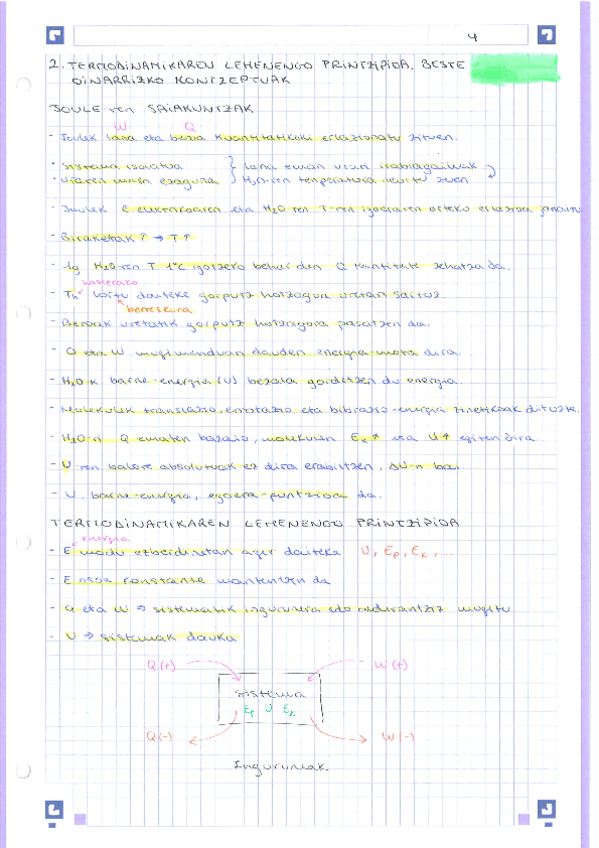 4
2. TERMODINAMIKAREN LEHENENGO PRINTZIPIOA. BESTE
OINARRIZKO KONTZEPTUAK
JOULE-ren SAIAKUNTZAK
W Q
- Joulek lana eta beroa kuantitatiboki erlazionatu zituen.
· Sistema isolatua } lana eman urari irabiagailuak
· Uraren masa ezaguna } H2O-ren tenperatura neurtu zuen
- Joulek E elektrikoaren eta H2O-ren T-ren igoeraren arteko erlazioa
- Biraketak ↑ → T ↑
- 1g H2O-ren T 1°C igotzeko behar den Q kantitate zehatza da.
baterako
- lortu daiteke gorputz hotzagoa uretan sartuz
berreskura
- Beroak uretatik gorputz hotzagora pasatzen da.
- Q eta W mugimenduan dauden energia-mota dira.
- H2O-k barne-energia (U) bezala gordetzen du energia.
- Molekulek translazio, errotazio eta bibrazio-energia zinetikoak dituzte.
- H2O-ri Q ematen bazaio, molekulen Ek ↑ eta U ↑ egiten dira.
- U-ren balore absolutuak ez dira erabiltzen, ΔU-n bai.
- U, barne-energia, egoera-funtzioa da.
TERMODINAMIKAREN LEHENENGO PRINTZIPIOA
energia
- E modu ezberdinetan ager daiteke U, Ep, Ek, ...
- E osoa konstante mantentzen da
- Q eta W ⇒ sistematik ingurura edo alderantziz mugitu
- U ⇒ sistemak dauka
Q(+) W(+)
Sistema
Ep U Ek
Q(-) W(-)
Inguruneak